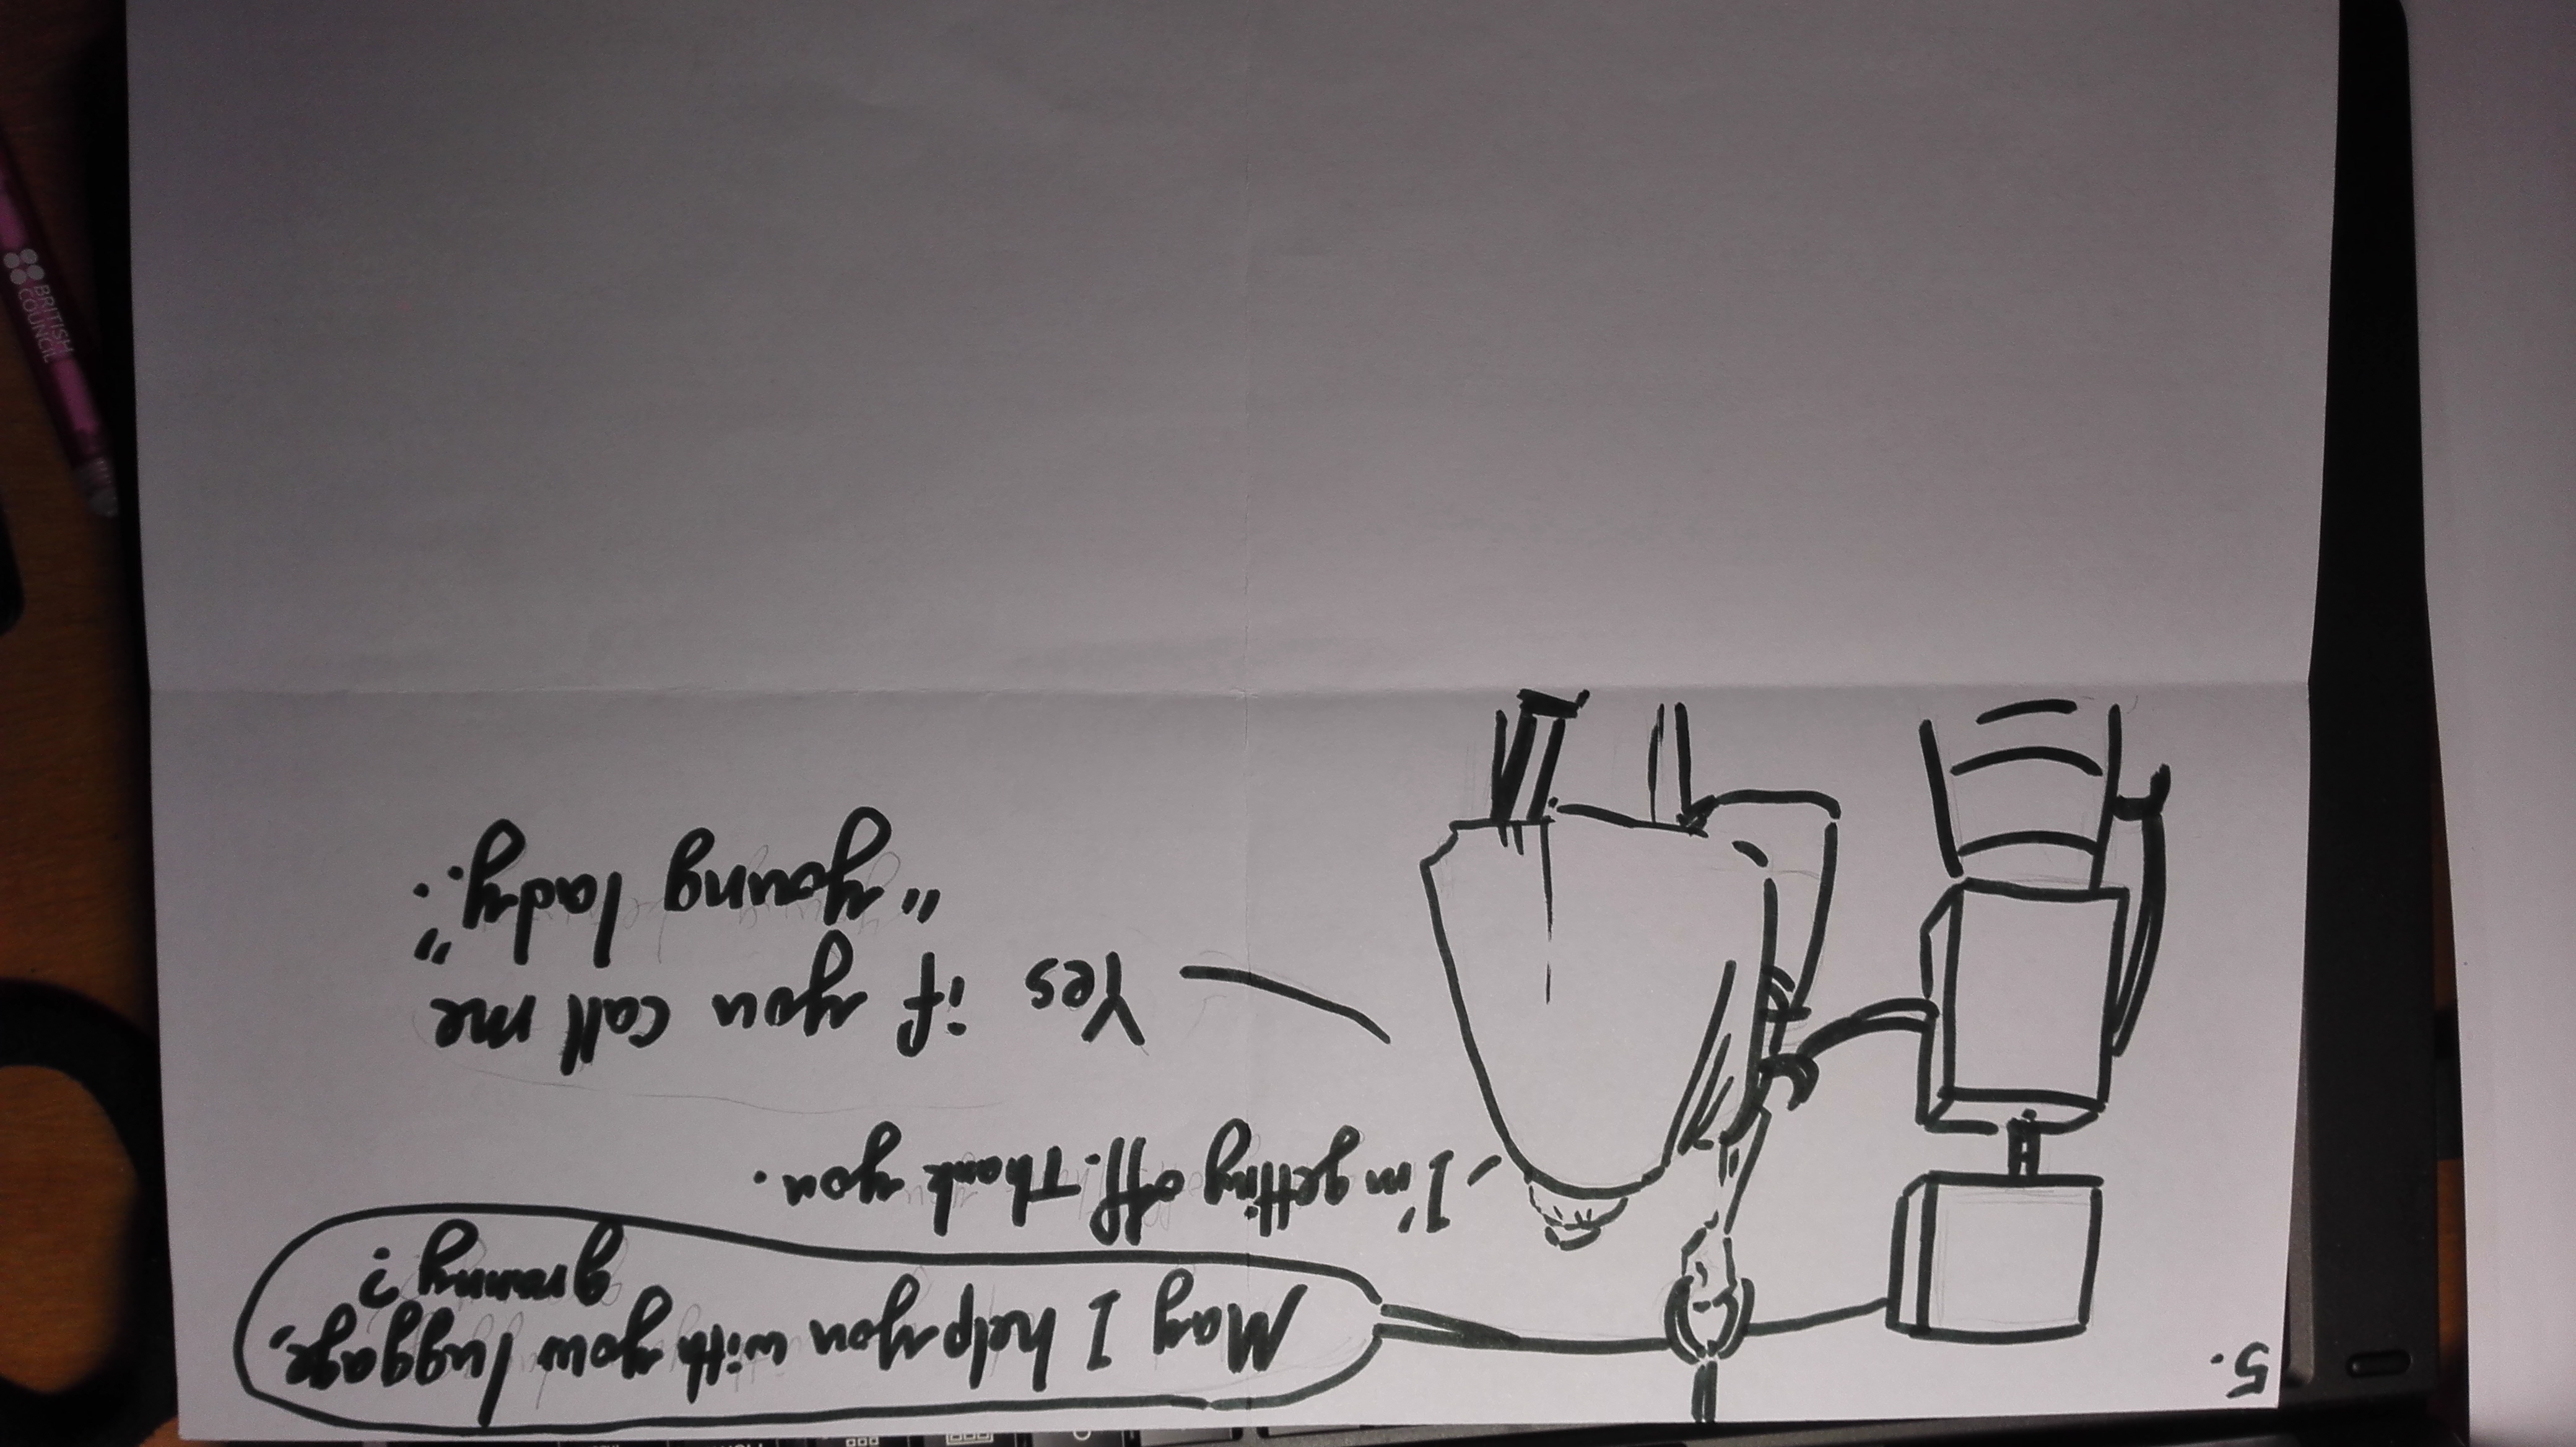 5.
May I help you with your luggage,
granny?
I'm getting off. Thank you.
Yes if you call me
"young lady".
BRITISH
COUNCIL